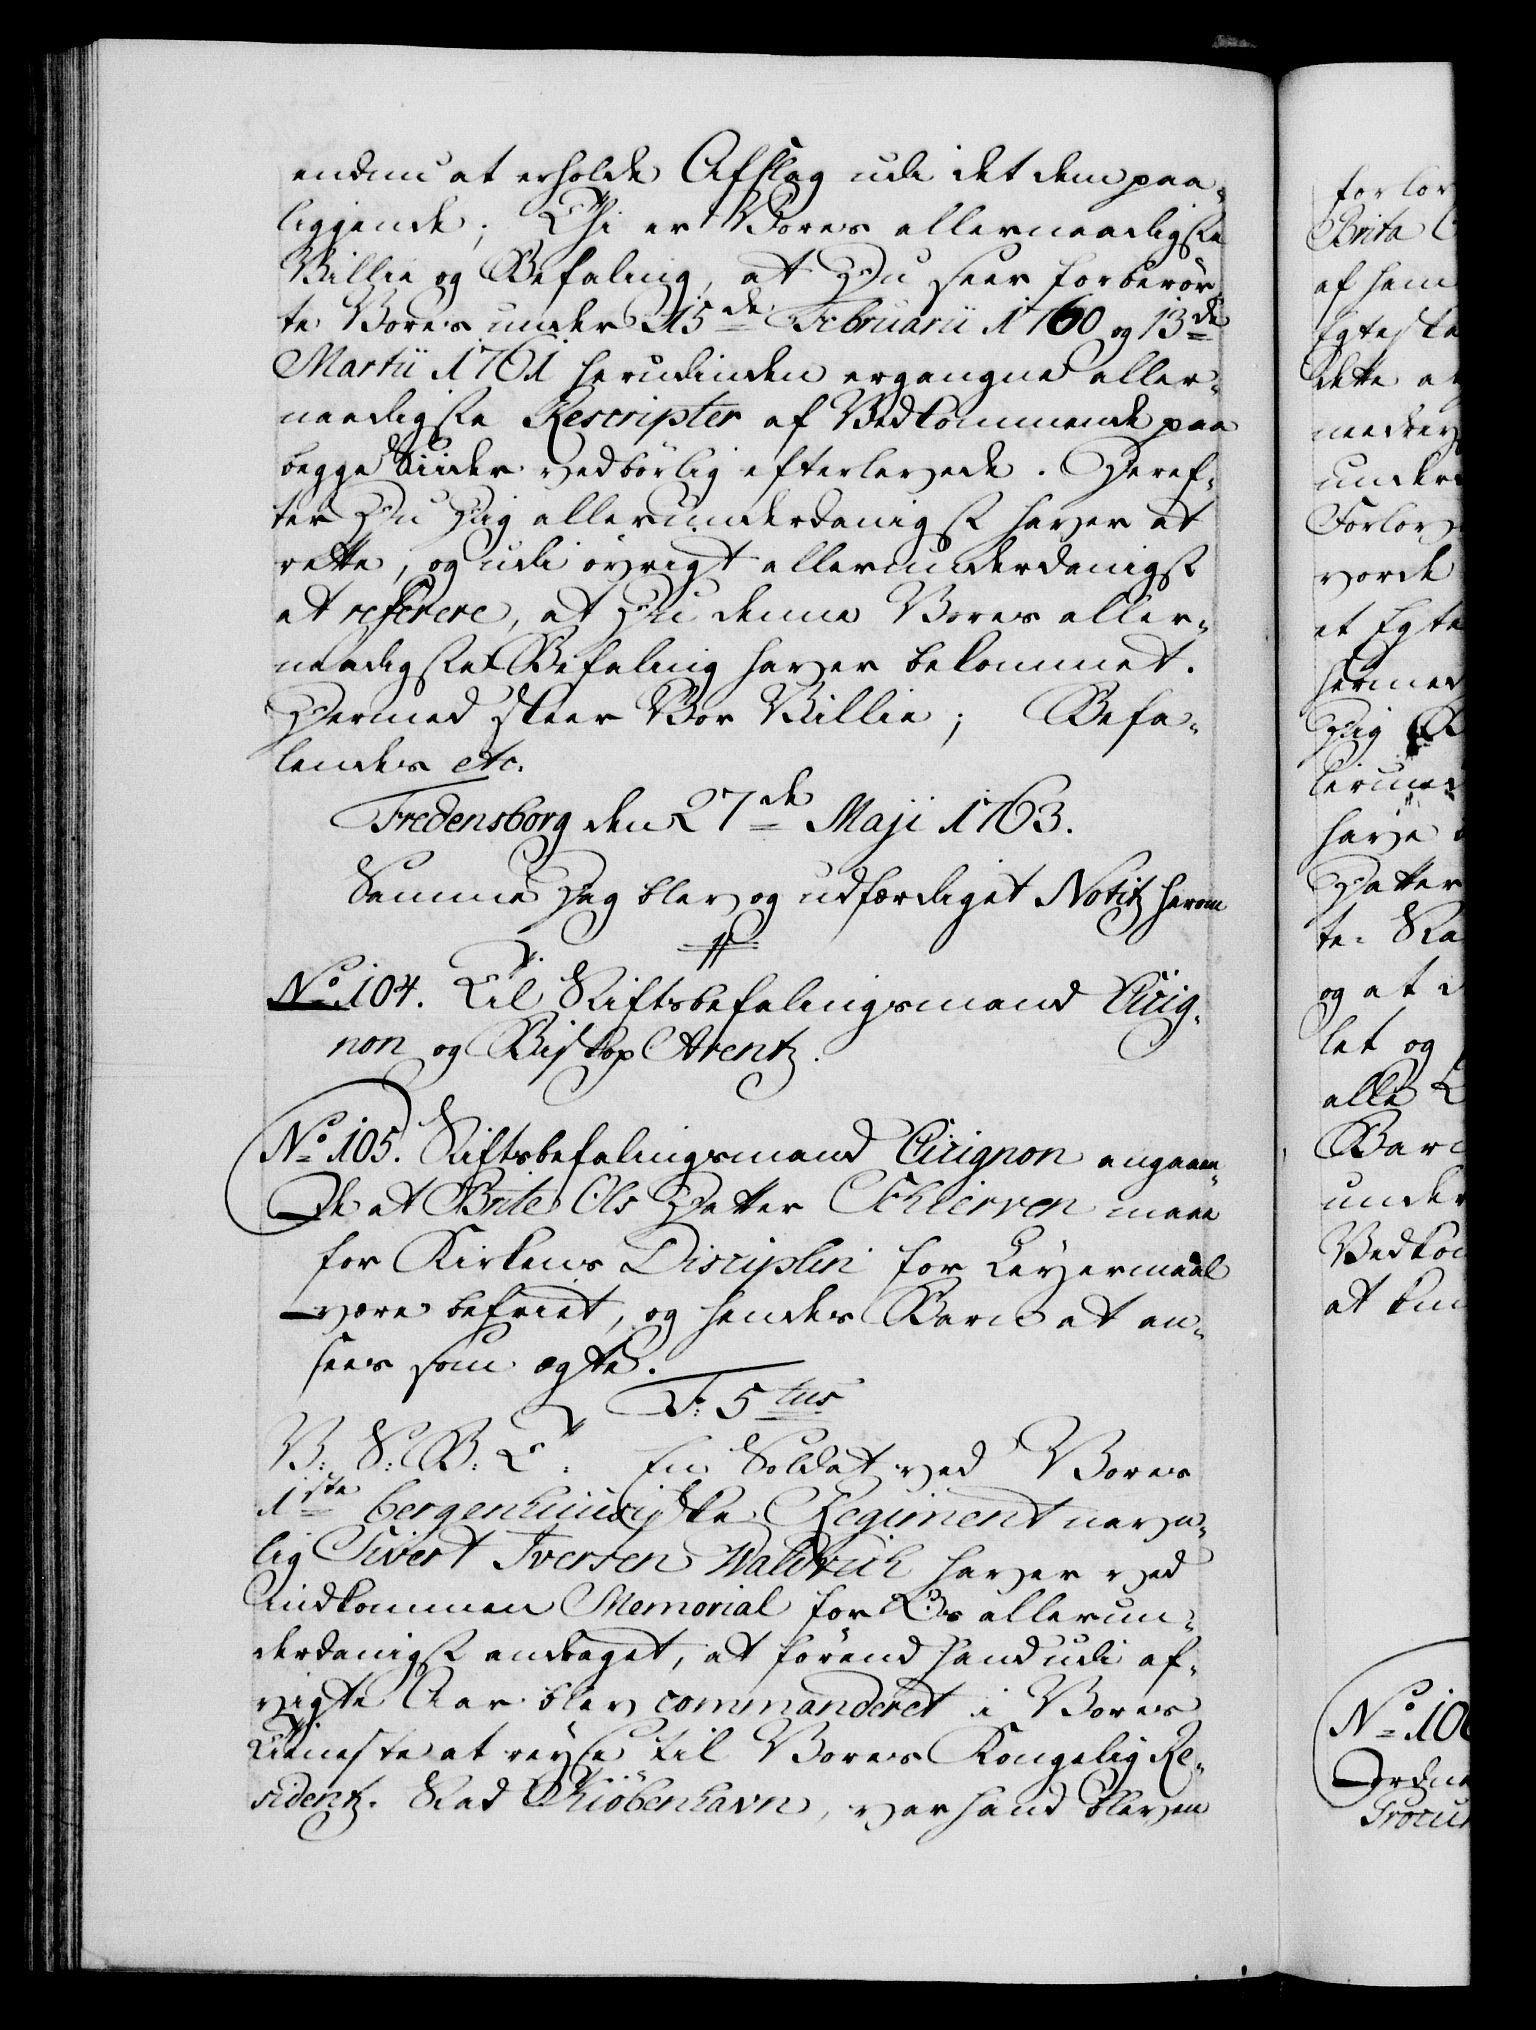 endnu at erholde Afslag udi det dem paa-
liggende; Thi er Vores allernaadigste
Villie og Befaling, at Du seer forberør-
te Vores under 15de Februarii 1760 og 13de
Martii 1761 herudinden ergangne aller-
naadigste Rescripter af Vedkommende paa
begge Siider vedbørlig efterlevede. Deref-
ter Du Dig allerunderdanigst haver at
rette, og udi øvrigt allerunderdanigst
at referere, at Du denne Vores aller-
naadigste Befaling haver bekommet.
Dermed skeer Vor Villie; Befa-
lendes etc.
Fredensborg den 27de Maji 1763.
Samme Dag blev og udfærdiget Notitz herom
No. 104. Til Stiftsbefalingsmand Cicig-
non og Biskop Arentz.
No. 105. Stiftsbefalingsmand Cicignon angaaen-
de at Brite Ols Datter Schierven maae
for Kirkens Disciplin for Leyermaal
være befriet, og hendes Barn at an-
sees som ægte.
F: 5tus
V: S: B: T: En Soldat ved Vores
1ste bergenhuusiske Regiment navn-
lig Sivert Iversen Waldvich haver ved
indkommen Memorial for Os allerun-
derdanigst andraget, at førend hand udi af-
vigte Aar blev commanderet i Vores
Tieneste at reyse til Vores Kongelig Re-
sidentz-Stad Kiøbenhavn, var hand bleven
forlov
Brita
af ham
Egteska
dette a
under
Forlov
vorde
et Egte
hermed
Dig
have
Datter
te. Sta
og at
let og
alle
Barn
under
Vedkom
at kun
No. 106